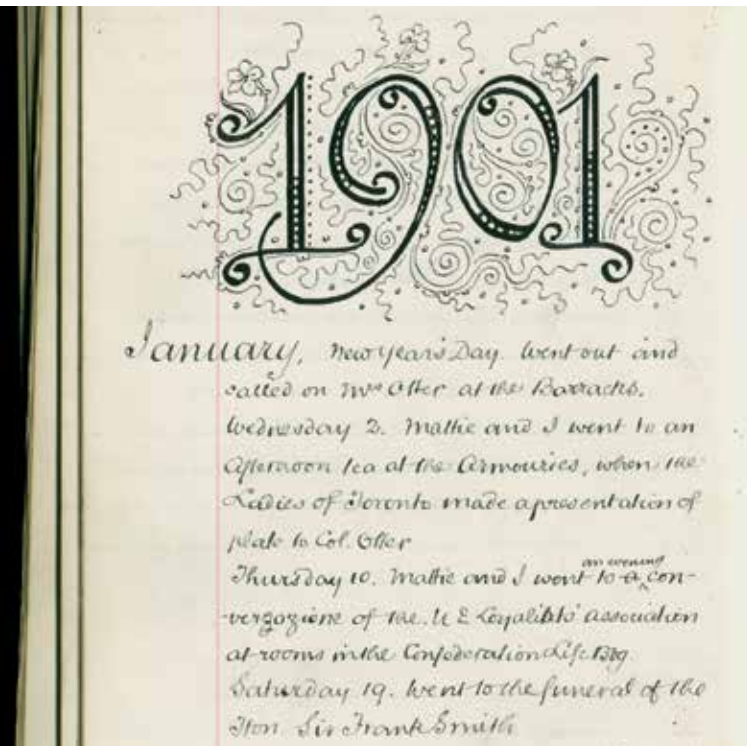 1901
January, New Year's Day. Went out and
called on Mrs Otter at the Barracks.
Wednesday 2. Mattie and I went to an
afternoon tea at the Armouries, when the
Ladies of Toronto made a presentation of
plate to Col. Otter
an evening
Thursday 10. Mattie and I went to a con-
-vergazione of the U E Loyalists' Association
at rooms in the Confederation Life Bdg.
Saturday 19. Went to the funeral of the
Hon. Sir Frank Smith